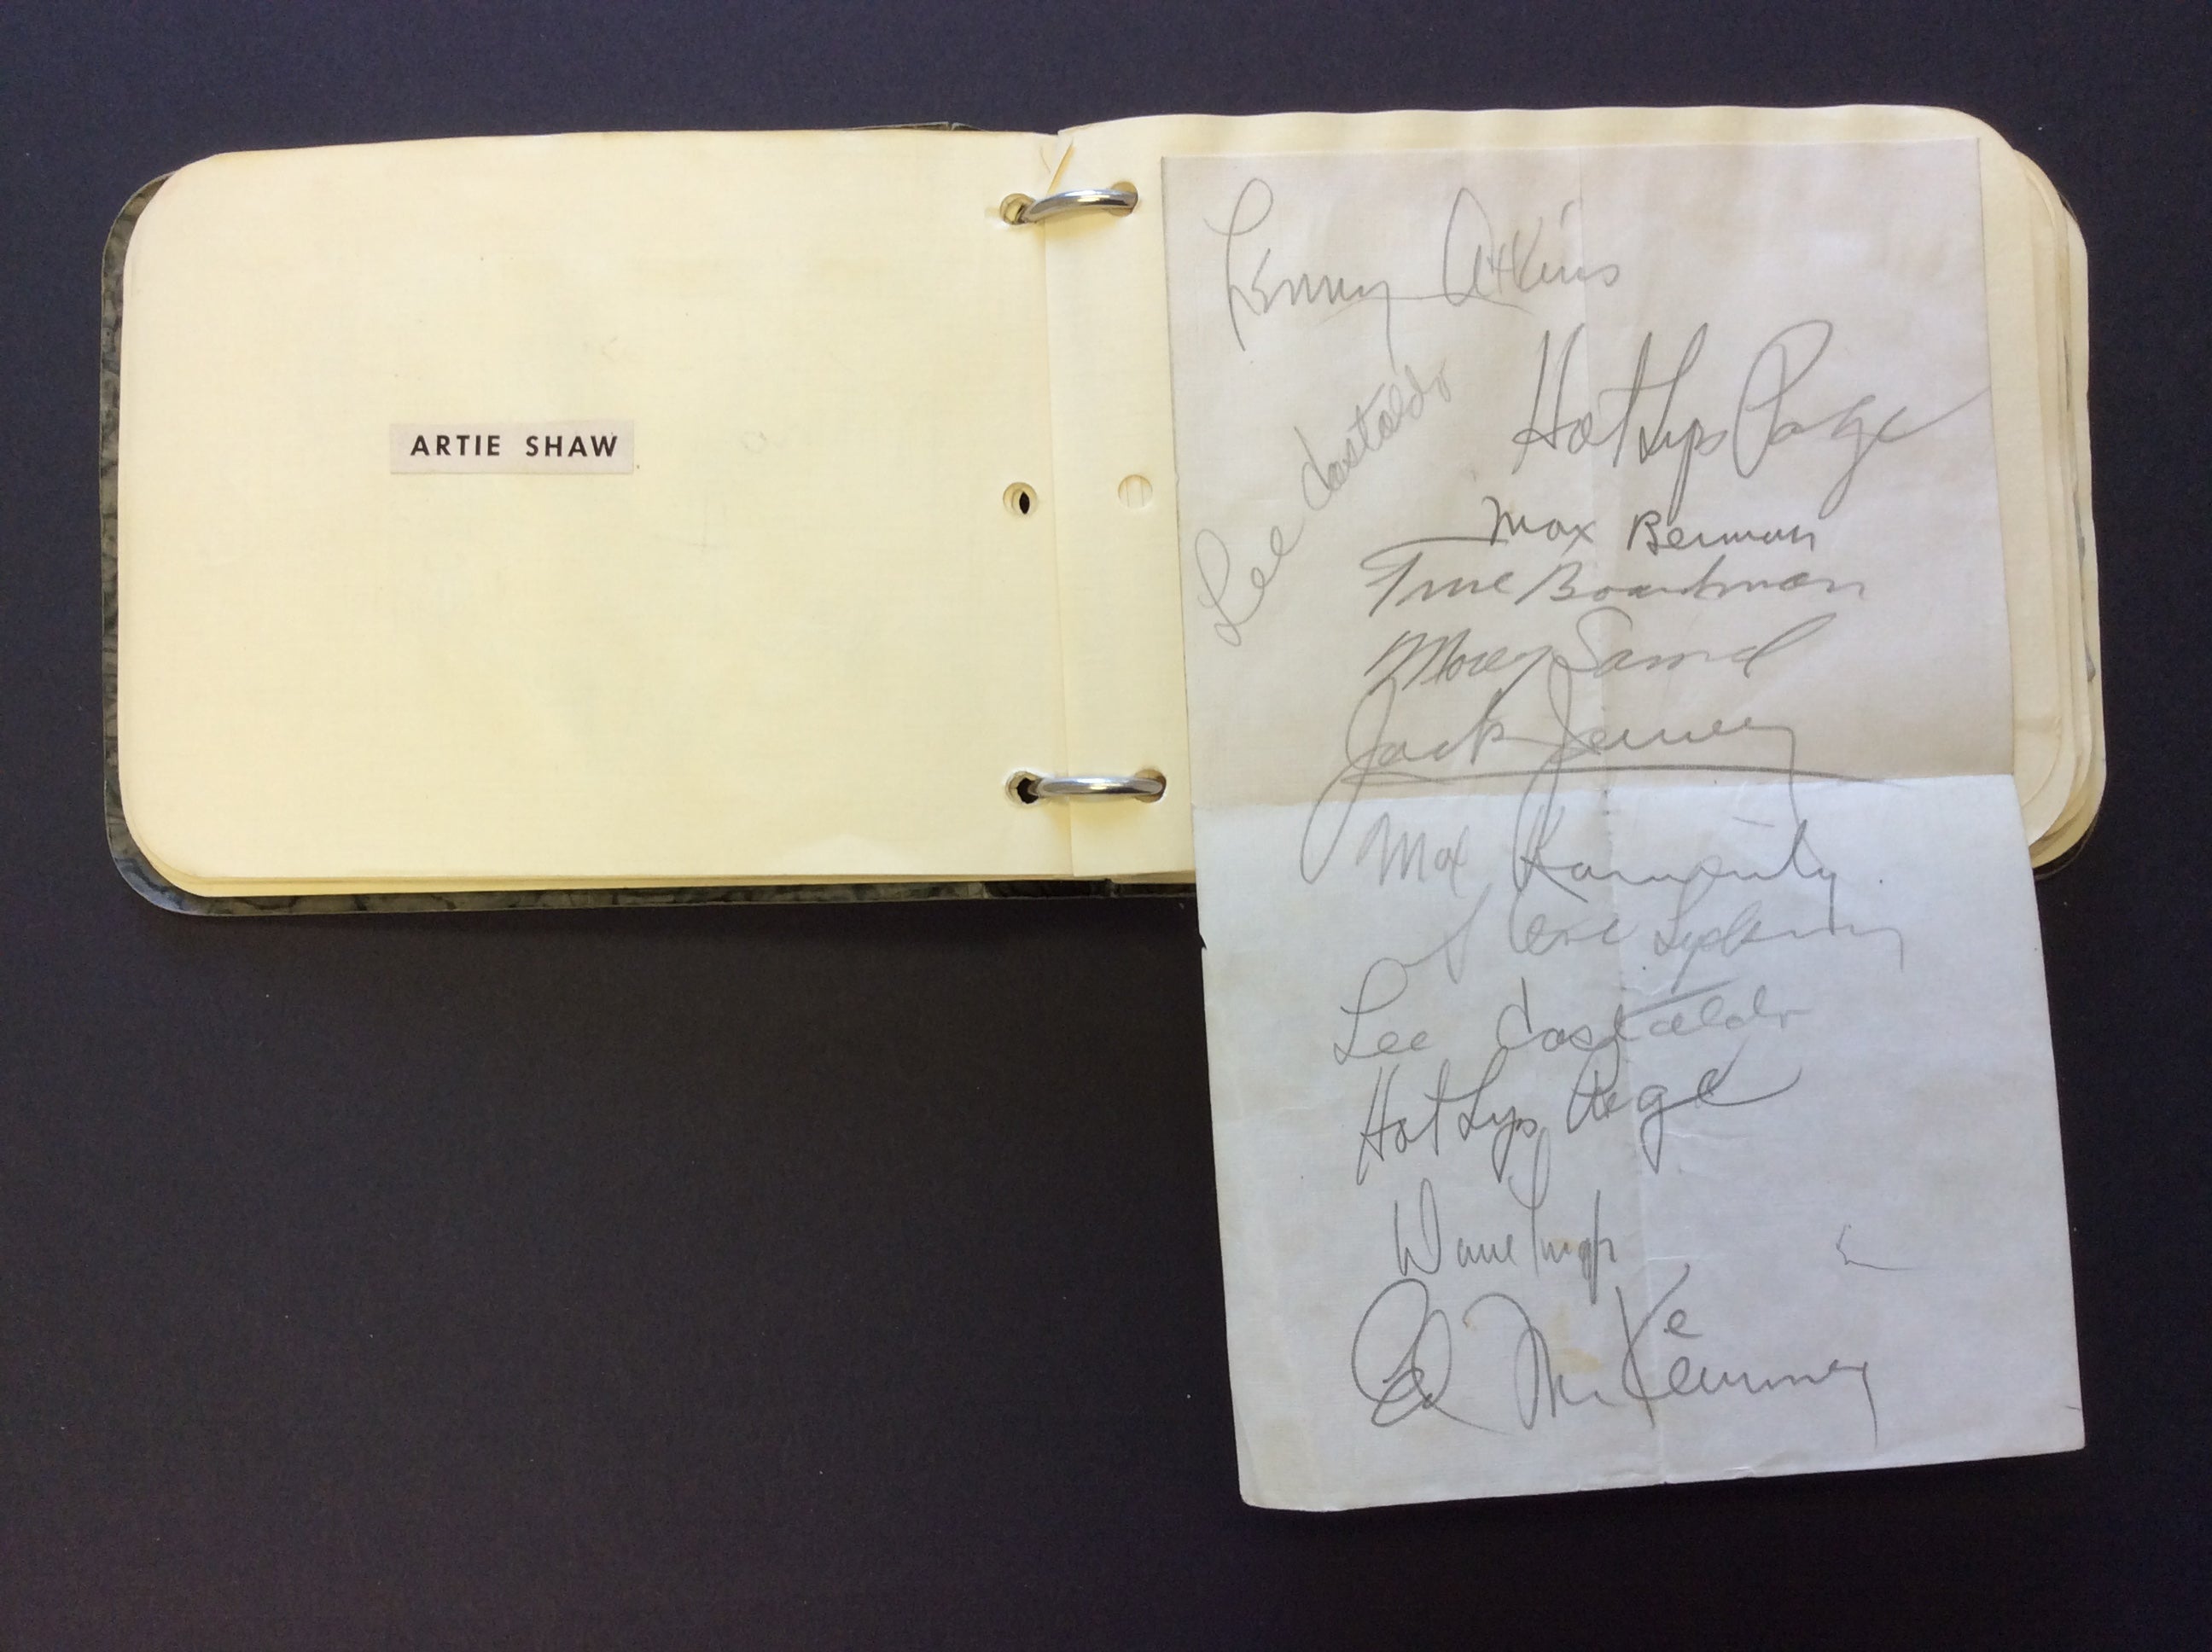 ARTIE SHAW
Lenny Atkins
Hot Lips Page
Lee Castaldo
Max Berman
True Boardman
Morey Samel
Jack Jenney
Max Kaminsky
Lee Castaldo
Hot Lips Page
Ed McKenney